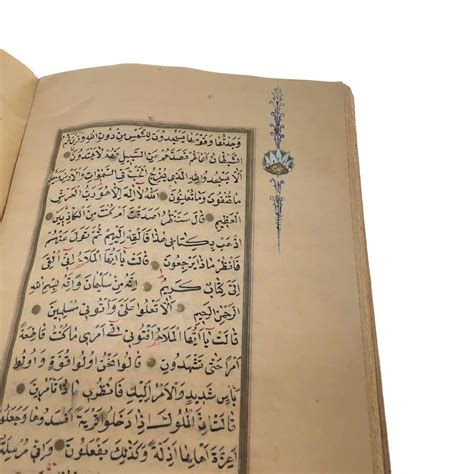 وَجَدْتُهَا وَقَوْمَهَا يَسْجُدُونَ لِلشَّمْسِ مِنْ دُونِ اللّٰهِ وَزَيَّنَ لَهُمُ
الشَّيْطَانُ اَعْمَالَهُمْ فَصَدَّهُمْ عَنِ السَّبِيلِ فَهُمْ لَا يَهْتَدُونَ
اَلَّا يَسْجُدُوا لِلّٰهِ الَّذِي يُخْرِجُ الْخَبْءَ فِي السَّمٰوَاتِ وَالْاَرْضِ وَيَعْلَمُ
مَا تُخْفُونَ وَمَا تُعْلِنُونَ اَللّٰهُ لَا اِلٰهَ اِلَّا هُوَ رَبُّ الْعَرْشِ
الْعَظِيمِ قَالَ سَنَنْظُرُ اَصَدَقْتَ اَمْ كُنْتَ مِنَ الْكَاذِبِينَ
اِذْهَبْ بِكِتَابِي هٰذَا فَاَلْقِهْ اِلَيْهِمْ ثُمَّ تَوَلَّ عَنْهُمْ
فَانْظُرْ مَاذَا يَرْجِعُونَ قَالَتْ يَٓا اَيُّهَا الْمَلَأُ اِنِّي اُلْقِيَ
اِلَيَّ كِتَابٌ كَرِيمٌ اِنَّهُ مِنْ سُلَيْمَانَ وَاِنَّهُ بِسْمِ اللّٰهِ
الرَّحْمٰنِ الرَّحِيمِ اَلَّا تَعْلُوا عَلَيَّ وَأْتُونِي مُسْلِمِينَ
قَالَتْ يَٓا اَيُّهَا الْمَلَأُ اَفْتُونِي فِي اَمْرِي مَا كُنْتُ قَاطِعَةً
اَمْرًا حَتّٰى تَشْهَدُونِ قَالُوا نَحْنُ اُولُوا قُوَّةٍ وَاُولُوا
بَأْسٍ شَدِيدٍ وَالْاَمْرُ اِلَيْكِ فَانْظُرِي مَاذَا تَأْمُرِينَ
قَالَتْ اِنَّ الْمُلُوكَ اِذَا دَخَلُوا قَرْيَةً اَفْسَدُوهَا وَجَعَلُوا
اَعِزَّةَ اَهْلِهَا اَذِلَّةً وَكَذٰلِكَ يَفْعَلُونَ وَاِنِّي مُرْسِلَةٌ